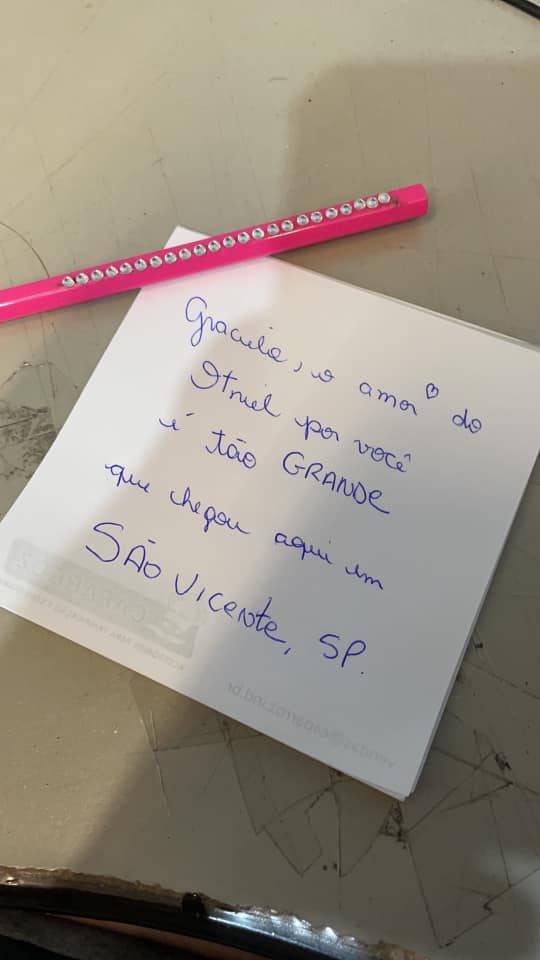 Graciela, o amor ♡ do
Itniel por você
é tão GRANDE
que chegou aqui em
SÃO VICENTE, SP.